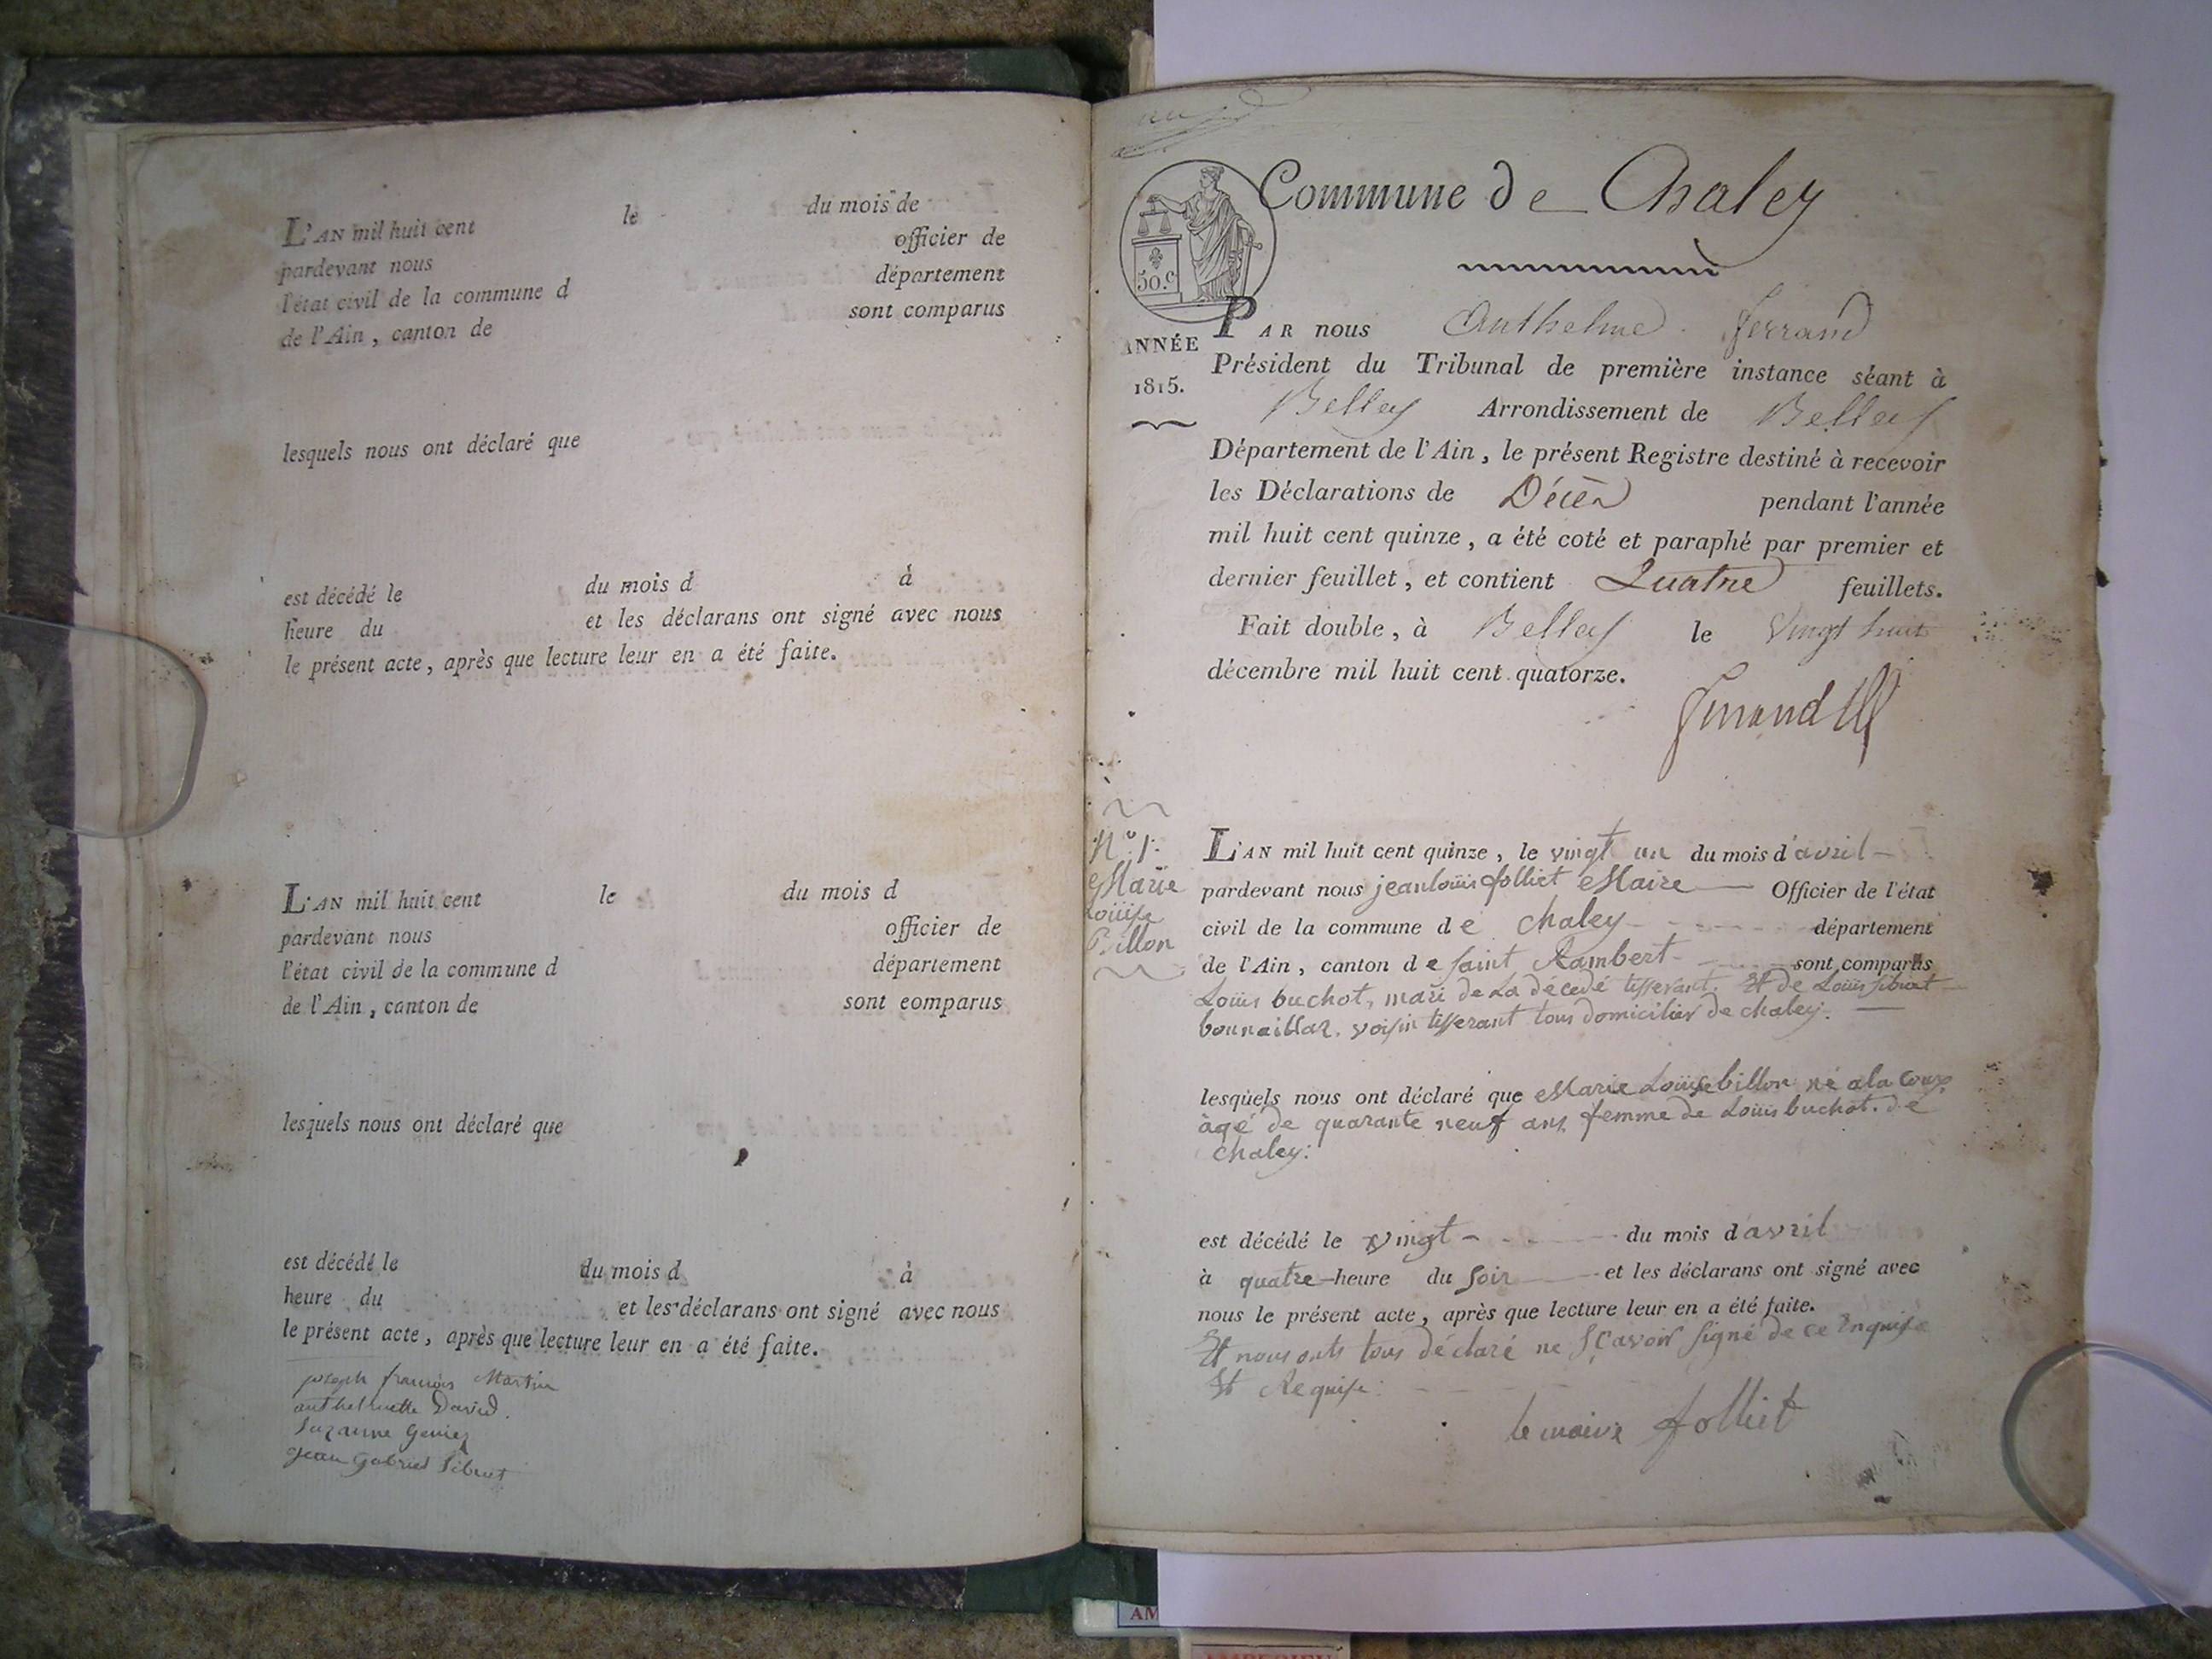 L'AN mil huit cent le du mois de
pardevant nous officier de
l'état civil de la commune d département
de l'Ain, canton de sont comparus
lesquels nous ont déclaré que
est décédé le du mois d à
heure du et les déclarans ont signé avec nous
le présent acte, après que lecture leur en a été faite.
L'AN mil huit cent le du mois d
pardevant nous officier de
l'état civil de la commune d département
de l'Ain, canton de sont eomparus
lesquels nous ont déclaré que
est décédé le du mois d à
heure du et les déclarans ont signé avec nous
le présent acte, après que lecture leur en a été faite.
joseph francois Martin
anthelmette David.
Suzanne Genier
jean Gabriel Sibuet
Commune de Chaley
50.c
ANNÉE
1815.
PAR nous Anthelme Ferrand
Président du Tribunal de première instance séant à
Belley Arrondissement de Belley
Département de l'Ain, le présent Registre destiné à recevoir
les Déclarations de Décès pendant l'année
mil huit cent quinze, a été coté et paraphé par premier et
dernier feuillet, et contient Quatre feuillets.
Fait double, à Belley le Vingt huit
décembre mil huit cent quatorze.
Ferrand
N.o 1.
Marie
Louise
Billon
L'AN mil huit cent quinze, le vingt un du mois d'avril
pardevant nous jean louis folliet Maire Officier de l'état
civil de la commune de chaley département
de l'Ain, canton de saint Rambert sont comparus
Louis buchot, mari de La décedé tisserant. Et de Louis sibuet
bonnaillar. voisin tisserant tous domicilier de chaley.
lesquels nous ont déclaré que Marie Louise billon né a la coux
àgé de quarante neuf ans femme de Louis buchot. de
chaley:
est décédé le vingt du mois d'avril
à quatre heure du soir et les déclarans ont signé avec
nous le présent acte, après que lecture leur en a été faite.
Et nous onts tous déclaré ne sçavoir signé de ce Enquise
Et Requise:
le maire folliet
AM